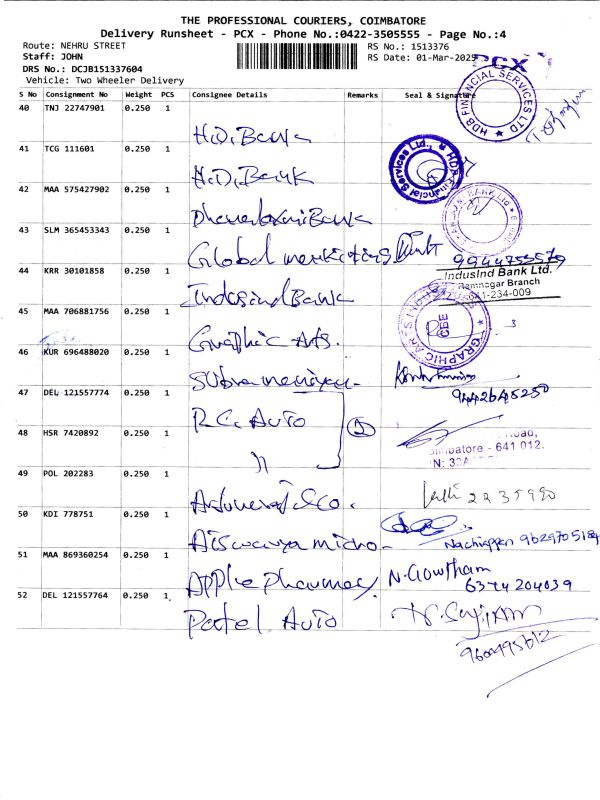 THE PROFESSIONAL COURIERS, COIMBATORE
Delivery Runsheet - PCX - Phone No.:0422-3505555 - Page No.:4
Route: NEHRU STREET
Staff: JOHN
DRS No.: DCJB151337604
Vehicle: Two Wheeler Delivery
RS No.: 1513376
RS Date: 01-Mar-2025
PCX
HDB FINANCIAL SERVICES LTD
S No Consignment No Weight PCS Consignee Details Remarks Seal & Signature
40 TNJ 22747901 0.250 1
H.D. Bank
41 TCG 111601 0.250 1
H.D. Bank
HDB Financial Services Ltd.,
42 MAA 575427902 0.250 1
Dhanalaxmi Bank
BANK Ltd
43 SLM 365453343 0.250 1
Global marketing
9944755579
44 KRR 30101858 0.250 1
Indusind Bank
IndusInd Bank Ltd.
Ramnagar Branch
641-234-009
45 MAA 706881756 0.250 1
Graphic Arts.
GRAPHIC ARTS INDUS
CBE
46 KUR 696488020 0.250 1
Subramaniyan
9442645250
47 DEL 121557774 0.250 1
R.C. Auto
48 HSR 7420892 0.250 1
"
Road,
oimbatore - 641 012.
49 POL 202283 0.250 1
& co.
2235990
50 KDI 778751 0.250 1
Aiswarya micro
Nachiappan 9629705184
51 MAA 869360254 0.250 1
Apple pharmacy
N. Gowtham
6374204039
52 DEL 121557764 0.250 1
Patel Auto
9600495612